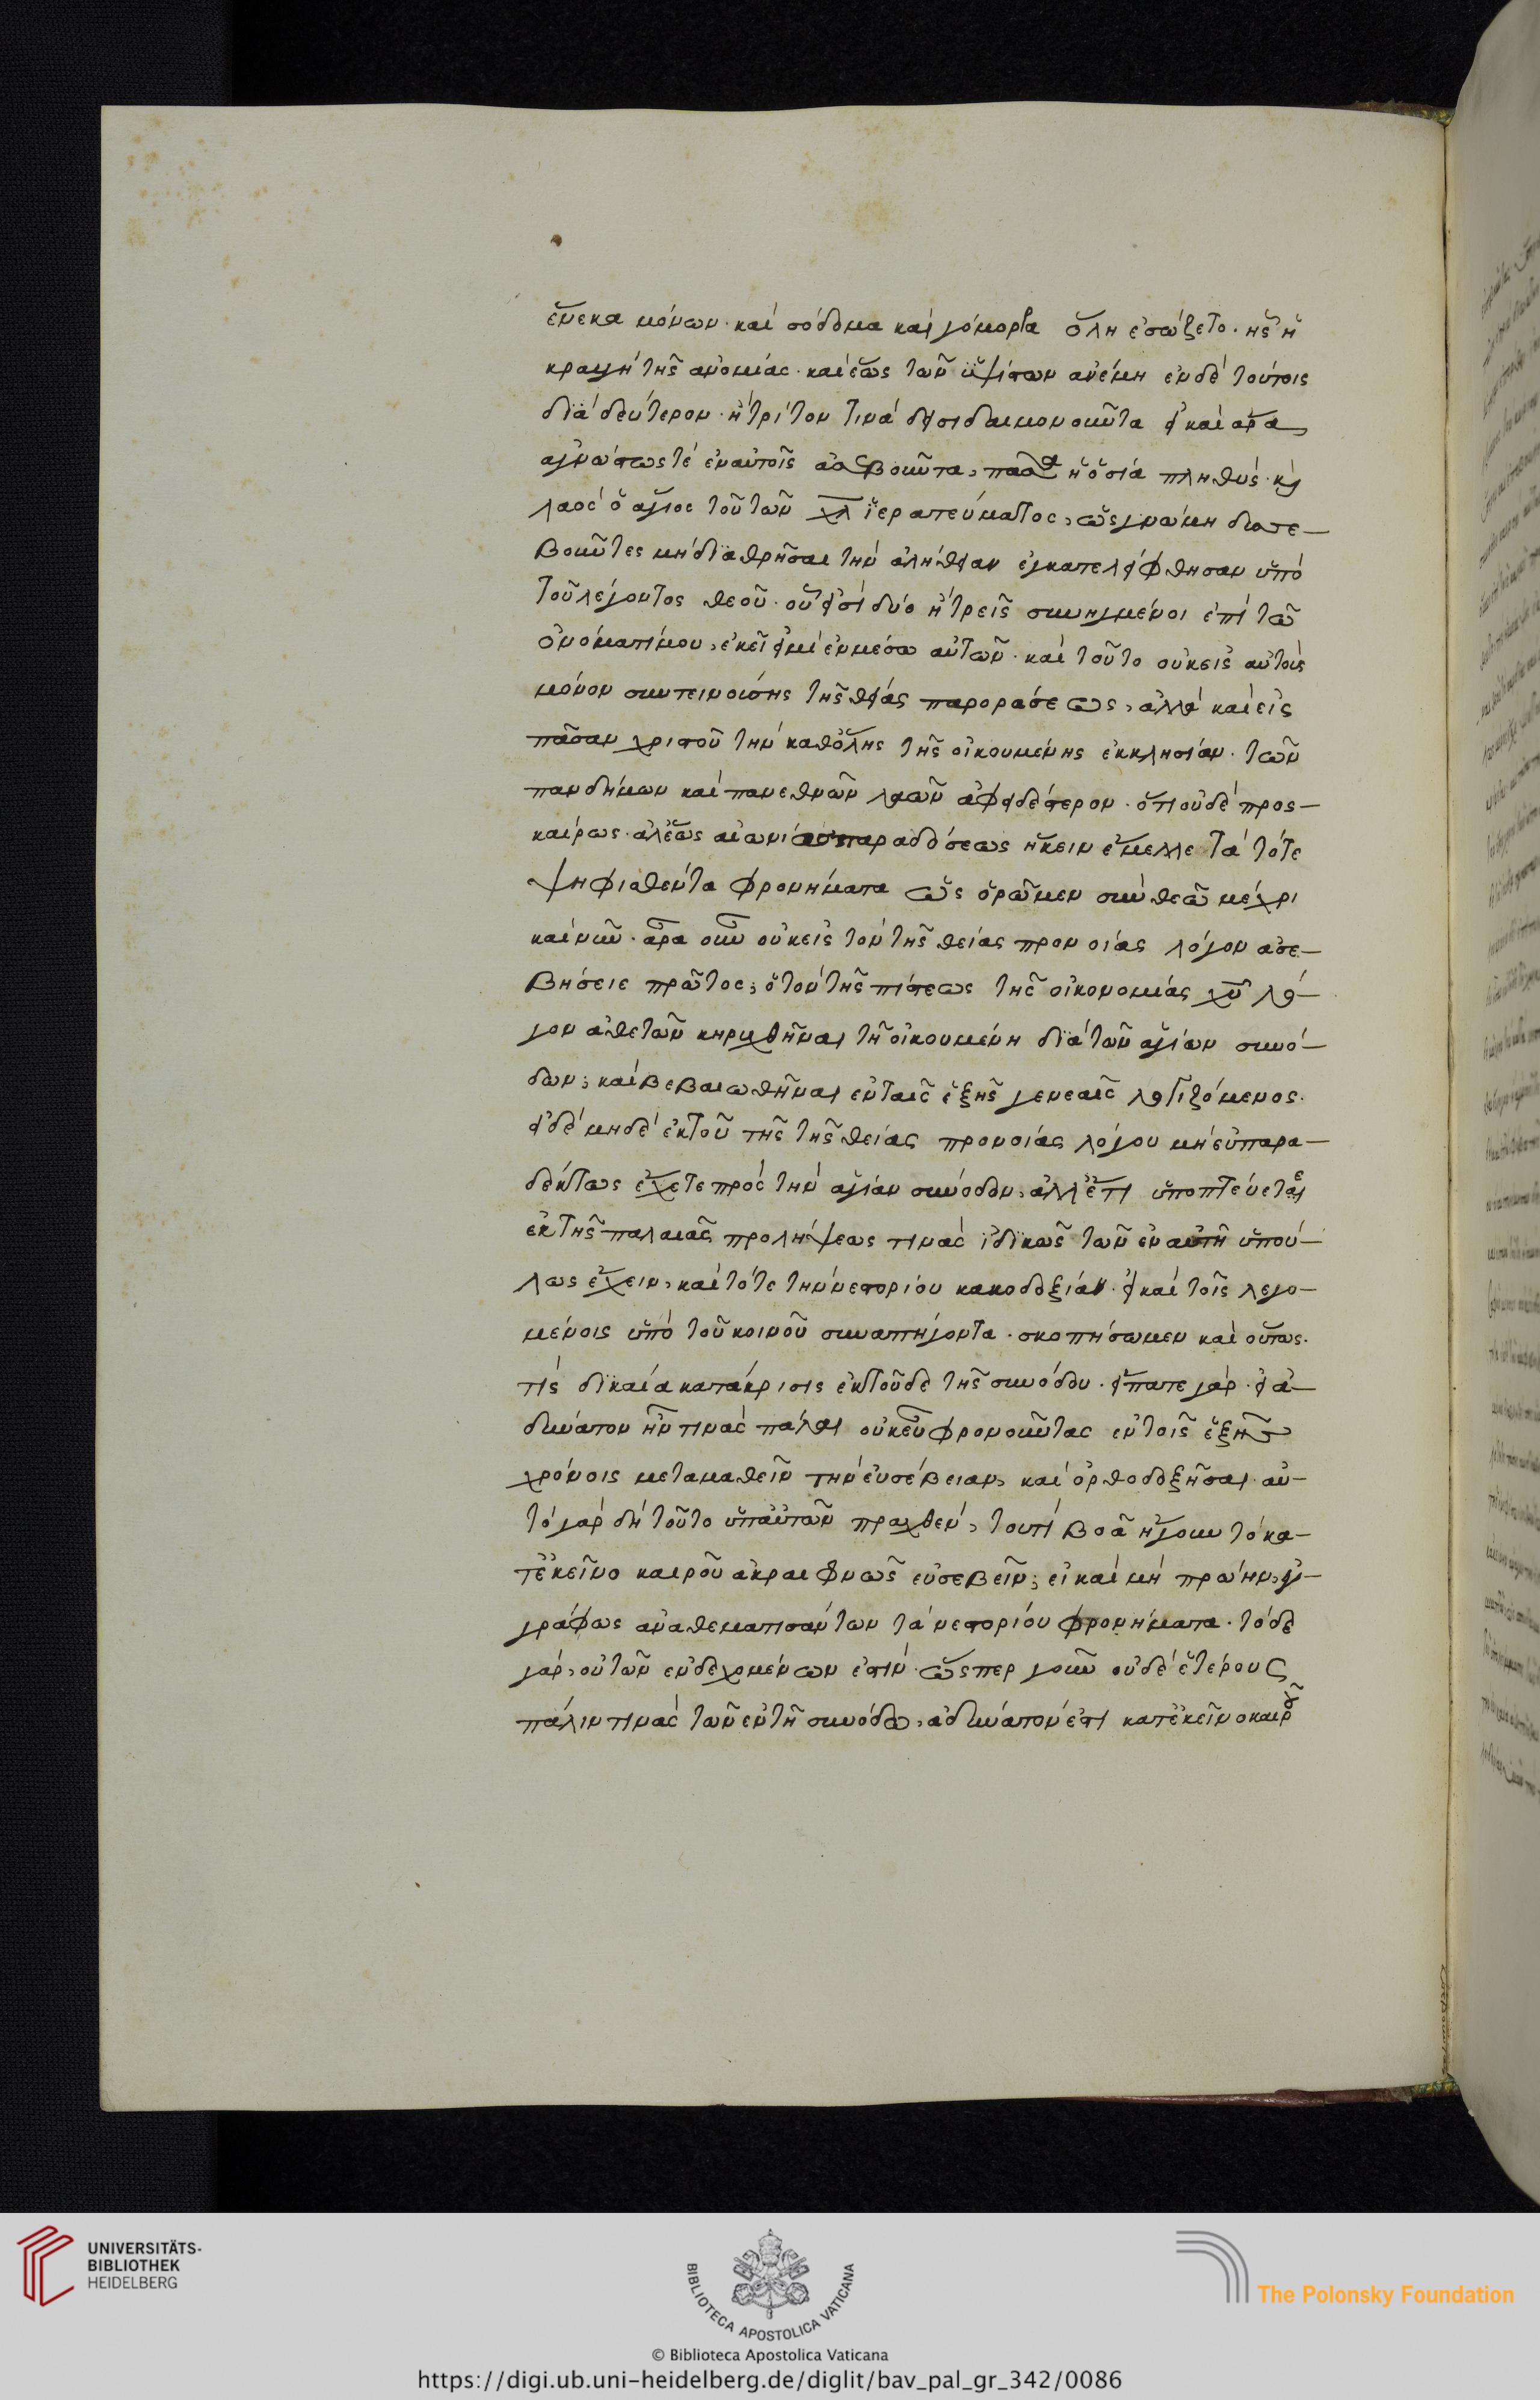 ἕνεκα μόνων· καὶ σόδομα καὶ γόμορρα ὅλη ἐσώζετο· ἧς ἡ
κραυγὴ τῆς ἀνομίας· καὶ ἕως τῶν ὑψίστων ἀνέβη ἐν δὲ τούτοις
διὰ δεύτερον· ἢ τρίτον τινὰ δεισιδαιμονοῦντα εἰ καὶ ἄρα,
ἀγνώστως τὲ ἐν αὐτοῖς ἀσεβοῦντα, πᾶσα ἡ ὁσία πληθὺς· κὶ
λαὸς ὁ ἅγιος τοῦ τῶν ἱερατεύματος, ὡς γνώμη διασε-
βοῦντες μὴ διαθρῆσαι τὴν ἀλήθειαν ἐγκατελείφθησαν ὑπὸ
τοῦ λέγοντος θεοῦ· οὗ εἰσὶ δύο ἢ τρεῖς συνηγμένοι ἐπὶ τῶ
ὀνόματί μου, ἐκεῖ εἰμὶ ἐν μέσω αὐτῶν· καὶ τοῦτο οὐκ εἰς αὐτοὺς
μόνον συντεινούσης τῆς θείας παροράσεως, ἀλλὰ καὶ εἰς
πᾶσαν χριστοῦ τὴν καθ' ὅλης τῆς οἰκουμένης ἐκκλησίαν· τῶν
πανδήμων καὶ πανεθνῶν λαῶν ἀφειδέστερον· ὅτι οὐδὲ προς-
καίρως· ἀλλ' ἕως αἰωνίας παραδόσεως ἥκειν ἔμελλε τὰ τότε
ψηφισθέντα φρονήματα ὡς ὁρῶμεν σὺν θεῶ μέχρι
καὶ νῦν· ἆρα οὖν οὐκ εἰς τὸν τῆς θείας προνοίας λόγον ἀσε-
βήσειε πρῶτος; ὁ τὸν τῆς πίστεως τῆς οἰκονομίας χυ λό-
γον ἀθετῶν κηρυχθῆναι τῆ οἰκουμένη διὰ τῶν ἁγίων συνό-
δων; καὶ βεβαιωθῆναι ἐν ταῖς ἑξῆς γενεαῖς λογιζόμενος·
εἰ δὲ μηδὲ ἐκ τοῦ τῆς τῆς θείας προνοίας λόγου μὴ εὐπαρα-
δέκτως ἔχετε πρὸς τὴν ἁγίαν σύνοδον, ἀλλ' ἔτι ὑποπτεύεται
ἐκ τῆς παλαιᾶς προλήψεως τινὰς ἰδικῶς τῶν ἐν αὐτῆ ὑπού-
λως ἔχειν, καὶ τότε τὴν νεστορίου κακοδοξίαν· εἰ καὶ τοῖς λεγο-
μένοις ὑπὸ τοῦ κοινοῦ συναπήγοντο· σκοπήσωμεν καὶ οὕτως·
τίς δικαία κατάκρισις ἐκ τοῦδε τῆς συνόδου· εἴπατε γάρ· εἰ ἀ-
δύνατον ἦν τινὰς πάλαι οὐκ εὖ φρονοῦντας ἐν τοῖς ἑξῆς
χρόνοις μεταμαθεῖν τὴν εὐσέβειαν, καὶ ὀρθοδοξῆσαι· αὐ-
τὸ γὰρ δὴ τοῦτο ὑπ' αὐτῶν πραχθὲν, τουτὶ βοᾶ ἤγουν τὸ κα-
τ' ἐκεῖνο καιροῦ ἀκραιφνῶς εὐσεβεῖν; εἰ καὶ μὴ πρώην, ἐγ-
γράφως ἀναθεματισάντων τὰ νεστορίου φρονήματα· τόδε
γάρ, οὐ τῶν ἐνδεχομένων ἐστίν· ὥσπερ γοῦν οὐδὲ ἑτέρους
πάλιν τινὰς τῶν ἐν τῆ συνόδω, ἀδύνατόν ἐστι κατ' ἐκεῖνο καιροῦ
UNIVERSITÄTS-
BIBLIOTHEK
HEIDELBERG
BIBLIOTECA APOSTOLICA VATICANA
The Polonsky Foundation
© Biblioteca Apostolica Vaticana
https://digi.ub.uni-heidelberg.de/diglit/bav_pal_gr_342/0086